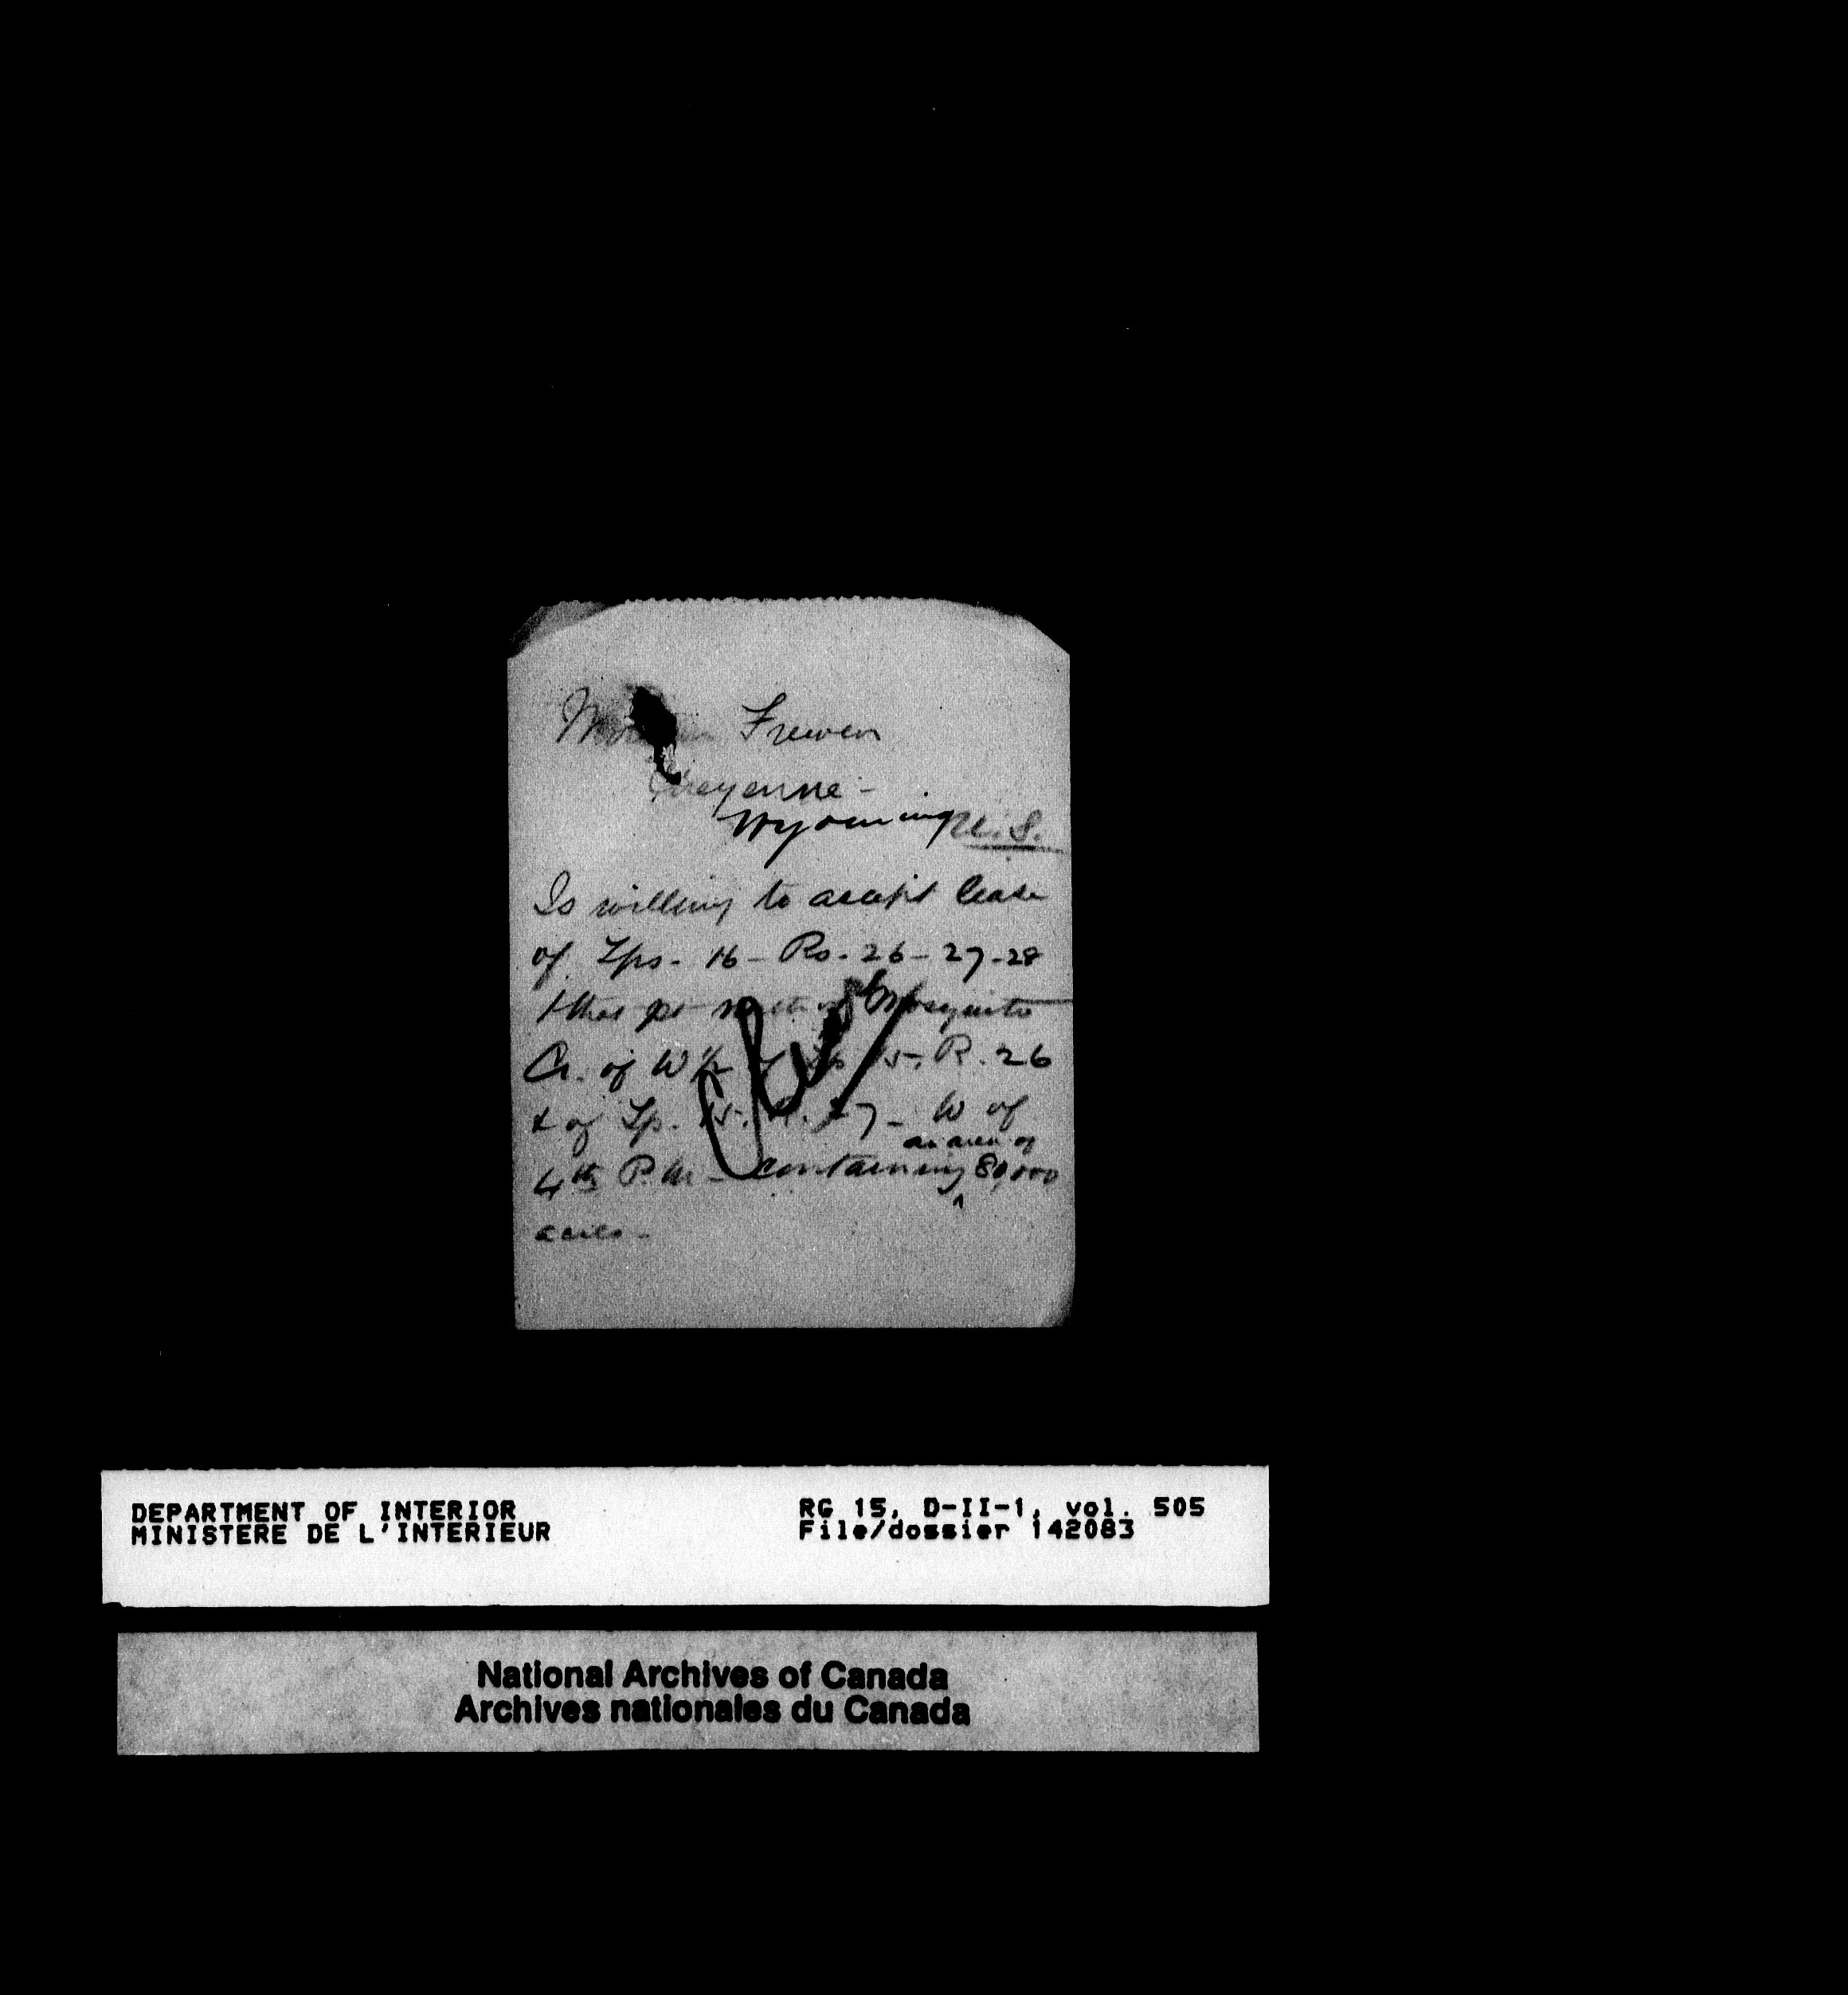 Frewen
Cheyenne -
Wyoming U.S.
Is willing to accept lease
of Tps. 16 - Rs. 26 - 27 - 28
& that pt north of Mosquito
Cr. of W ½ of Tp 15, R. 26
& of Tp. 15. R. 27 - W of
an area of
4th P.M - containing ^ 80,000
acres -
DEPARTMENT OF INTERIOR
MINISTERE DE L'INTERIEUR
RG 15, D-II-1, vol. 505
File/dossier 142083
National Archives of Canada
Archives nationales du Canada